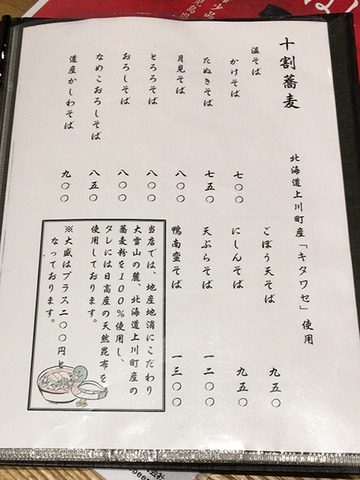 十割蕎麦
北海道上川町産「キタワセ」使用
温そば
かけそば 七〇〇
たぬきそば 七五〇
月見そば 八〇〇
とろろそば 八〇〇
おろしそば 八〇〇
なめこおろしそば 八五〇
道産かしわそば 九〇〇
ごぼう天そば 九五〇
にしんそば 九五〇
天ぷらそば 一二〇〇
鴨南蛮そば 一三〇〇
当店では、地産地消にこだわり
大雪山の麓、北海道上川町産の
蕎麦粉を100%使用し、
タレには日高産の天然昆布を
使用しております。
※大盛はプラス二〇〇円と
なっております。